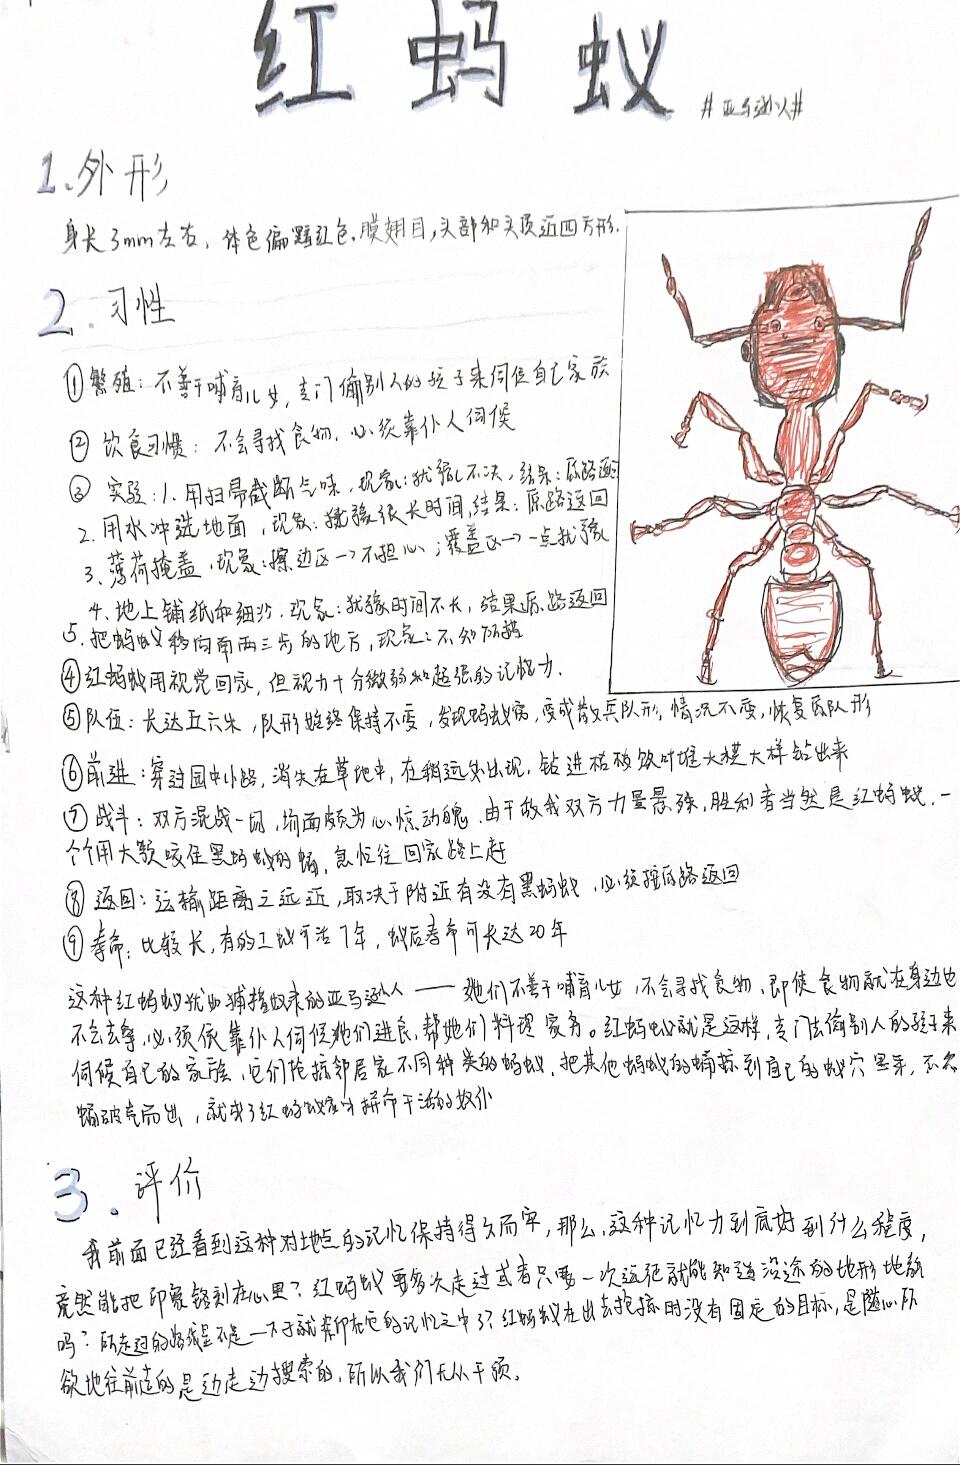 红蚂蚁 #亚马逊人#
1.外形
身长3mm左右，体色偏暗红色，膜翅目，头部和头顶近四方形.
2.习性
①繁殖：不善于哺育儿女，专门偷别人的孩子来伺候自己家族
②饮食习惯：不会寻找食物，必须靠仆人伺候
③实验：1.用扫帚截断气味，现象：犹豫不决，结果：原路返回
2.用水冲洗地面，现象：犹豫很长时间，结果：原路返回
3.薄荷掩盖，现象：擦边区→不担心；覆盖区→一点犹豫
4.地上铺纸和细沙，现象：犹豫时间不长，结果原路返回
5.把蚂蚁移向南两三步的地方，现象：不知所措
④红蚂蚁用视觉回家，但视力十分微弱和超强的记忆力.
⑤队伍：长达五六米，队形始终保持不变，发现蚂蚁窝，变成散兵队形，情况不变，恢复原队形
⑥前进：穿过园中小路，消失在草地中，在稍远处出现，钻进枯枝败叶堆大模大样钻出来
⑦战斗：双方混战一团，场面颇为心惊动魄，由于敌我双方力量悬殊，胜利者当然是红蚂蚁，一
个个用大颚咬住黑蚂蚁的蛹，急忙往回家路上赶
⑧返回：运输距离之远近，取决于附近有没有黑蚂蚁，必须按原路返回
⑨寿命：比较长，有的工蚁可活7年，蚁后寿命可长达20年
这种红蚂蚁犹如捕捉奴隶的亚马逊人——她们不善于哺育儿女，不会寻找食物，即使食物就在身边也
不会去拿，必须依靠仆人伺候她们进食，帮她们料理家务。红蚂蚁就是这样，专门去偷别人的孩子来
伺候自己的家族，它们抢掠邻居家不同种类的蚂蚁，把其他蚂蚁的蛹掠到自己的蚁穴里来，不久
蛹破壳而出，就成了红蚂蚁家中拼命干活的奴仆
3.评价
我前面已经看到这种对地点的记忆保持得久而牢，那么，这种记忆力到底好到什么程度，
竟然能把印象铭刻在心里？红蚂蚁要多次走过或者只要一次远征就能知道沿途的地形地貌
吗？所走过的路线是不是一下子就刻印在它的记忆之中了？红蚂蚁在出去抢掠时没有固定的目标，是随心所
欲地往前走的是边走边搜索的，所以我们无从干预。